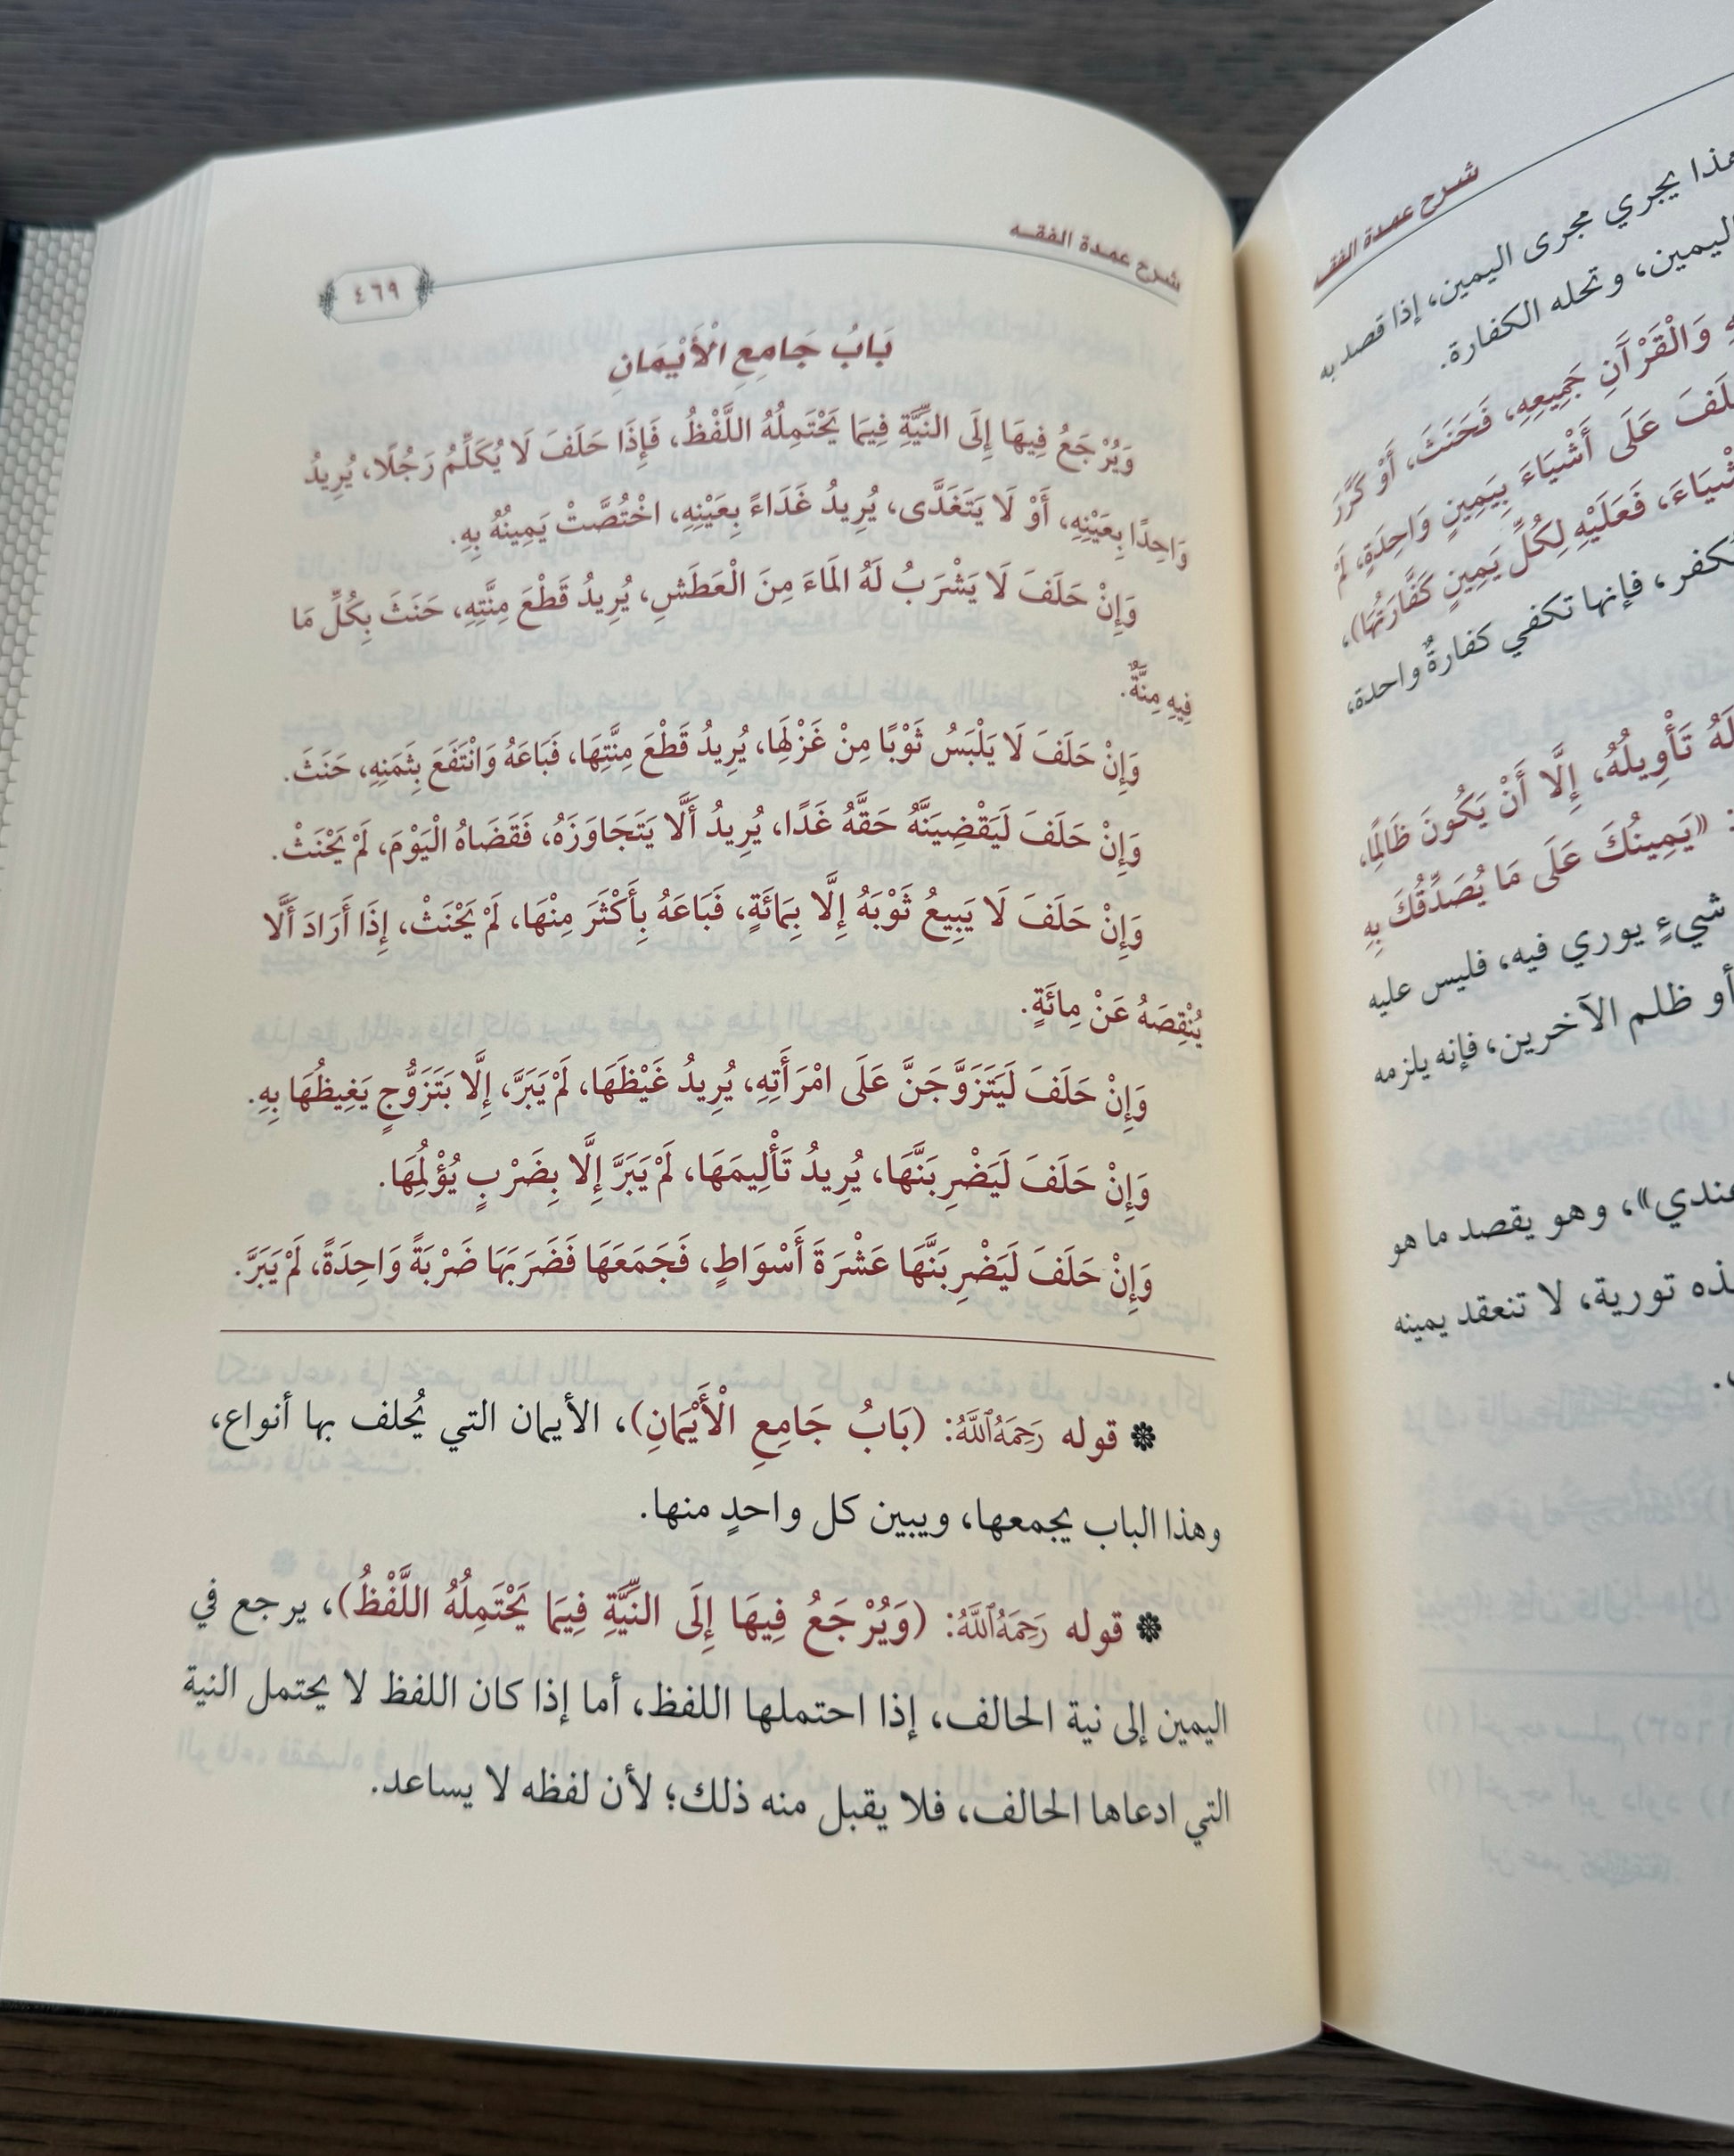 شرح عمدة الفقه
هذا يجري مجرى اليمين، إذا قصد به
اليمين، وتحله الكفارة.
وَالْقُرْآنِ جَمِيعِهِ، فَحَنَثَ، أَوْ كَرَّرَ
عَلَى أَشْيَاءَ بِيَمِينٍ وَاحِدَةٍ، لَمْ
فَعَلَيْهِ لِكُلِّ يَمِينٍ كَفَّارَتُهَا)،
فإنها تكفي كفارةٌ واحدة،
تَأْوِيلُهُ، إِلَّا أَنْ يَكُونَ ظَالِمًا،
«يَمِينُكَ عَلَى مَا يُصَدِّقُكَ بِهِ
شيءٍ يوري فيه، فليس عليه
أو ظلم الآخرين، فإنه يلزمه
عندي»، وهو يقصد ما هو
تورية، لا تنعقد يمينه
شرح عمدة الفقه
٤٦٩
بَابُ جَامِعِ الْأَيْمَانِ
وَيُرْجَعُ فِيهَا إِلَى النِّيَّةِ فِيمَا يَحْتَمِلُهُ اللَّفْظُ، فَإِذَا حَلَفَ لَا يُكَلِّمُ رَجُلًا، يُرِيدُ
وَاحِدًا بِعَيْنِهِ، أَوْ لَا يَتَغَدَّى، يُرِيدُ غَدَاءً بِعَيْنِهِ، اخْتُصَّتْ يَمِينُهُ بِهِ.
وَإِنْ حَلَفَ لَا يَشْرَبُ لَهُ المَاءَ مِنَ الْعَطَشِ، يُرِيدُ قَطْعَ مِنَّتِهِ، حَنَثَ بِكُلِّ مَا
فِيهِ مِنَّةٌ.
وَإِنْ حَلَفَ لَا يَلْبَسُ ثَوْبًا مِنْ غَزْلِهَا، يُرِيدُ قَطْعَ مِنَّتِهَا، فَبَاعَهُ وَانْتَفَعَ بِثَمَنِهِ، حَنَثَ.
وَإِنْ حَلَفَ لَيَقْضِيَنَّهُ حَقَّهُ غَدًا، يُرِيدُ أَلَّا يَتَجَاوَزَهُ، فَقَضَاهُ الْيَوْمَ، لَمْ يَحْنَثْ.
وَإِنْ حَلَفَ لَا يَبِيعُ ثَوْبَهُ إِلَّا بِمَائَةٍ، فَبَاعَهُ بِأَكْثَرَ مِنْهَا، لَمْ يَحْنَثْ، إِذَا أَرَادَ أَلَّا
يُنْقِصَهُ عَنْ مِائَةٍ.
وَإِنْ حَلَفَ لَيَتَزَوَّجَنَّ عَلَى امْرَأَتِهِ، يُرِيدُ غَيْظَهَا، لَمْ يَبَرَّ، إِلَّا بَتَزَوُّجٍ يَغِيظُهَا بِهِ.
وَإِنْ حَلَفَ لَيَضْرِبَنَّهَا، يُرِيدُ تَأْلِيمَهَا، لَمْ يَبَرَّ إِلَّا بِضَرْبٍ يُؤْلِمُهَا.
وَإِنْ حَلَفَ لَيَضْرِبَنَّهَا عَشْرَةَ أَسْوَاطٍ، فَجَمَعَهَا فَضَرَبَهَا ضَرْبَةً وَاحِدَةً، لَمْ يَبَرَّ.
❁ قوله رَحِمَهُ اللَّهُ: (بَابُ جَامِعِ الْأَيْمَانِ)، الأيمان التي يُحلف بها أنواع،
وهذا الباب يجمعها، ويبين كل واحدٍ منها.
❁ قوله رَحِمَهُ اللَّهُ: (وَيُرْجَعُ فِيهَا إِلَى النِّيَّةِ فِيمَا يَحْتَمِلُهُ اللَّفْظُ)، يرجع في
اليمين إلى نية الحالف، إذا احتملها اللفظ، أما إذا كان اللفظ لا يحتمل النية
التي ادعاها الحالف، فلا يقبل منه ذلك؛ لأن لفظه لا يساعد.